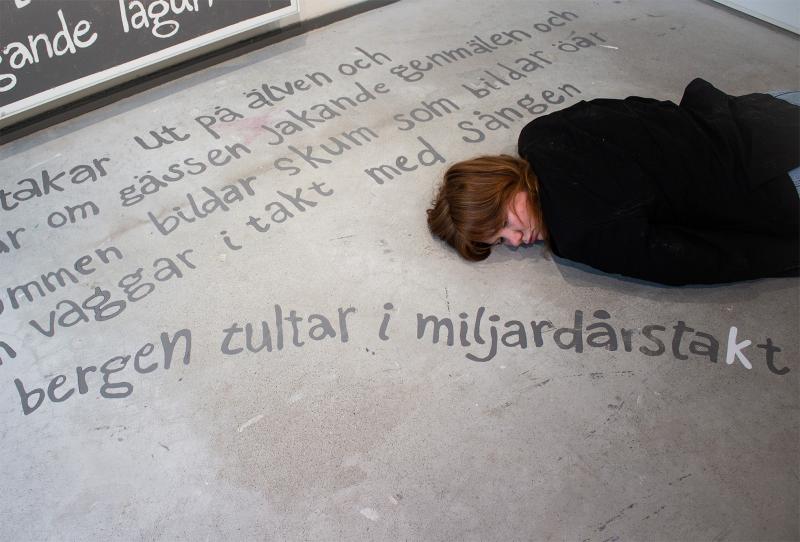 gande lagun
takar ut på älven och
ar om gässen jakande genmälen och
ommen bildar skum som bildar öar
n vaggar i takt med sången
bergen zultar i miljardårstakt